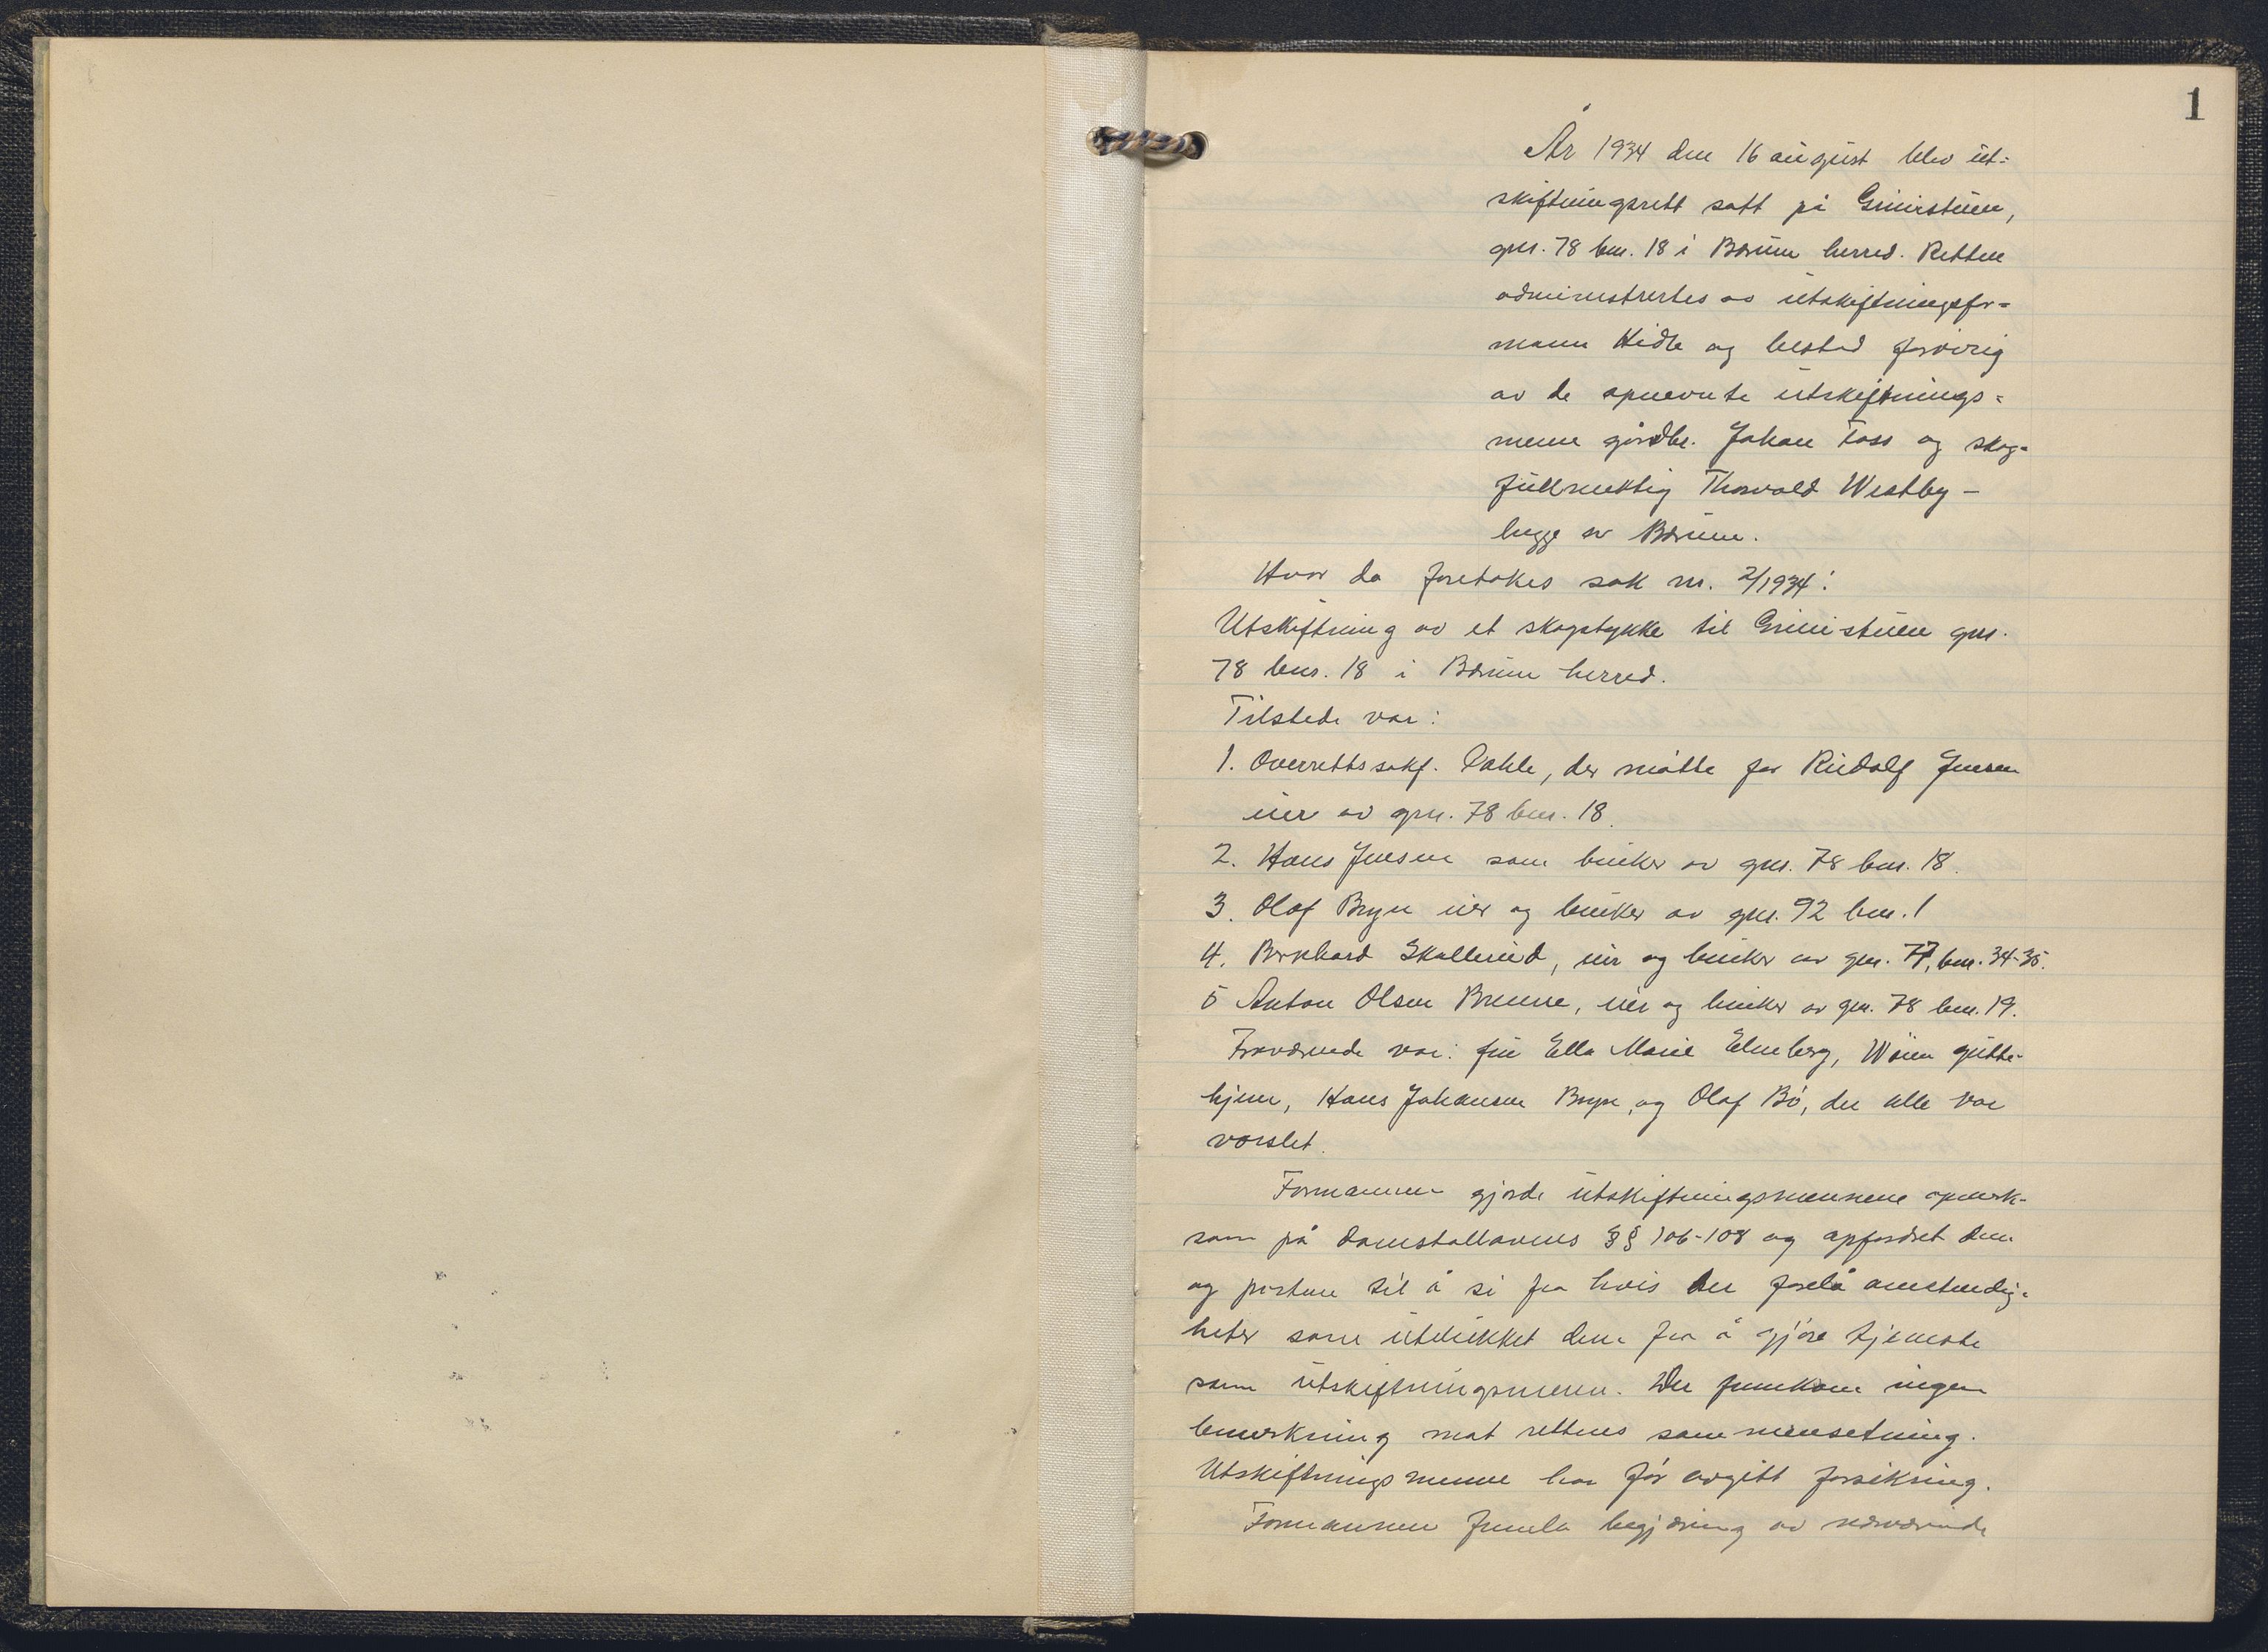 1
År 1934 den 16 august blev ut-
skiftningsrett satt på Grinistuen,
gnr. 78 bnr. 18 i Bærum herred. Retten
administrertes av utskiftningsfor-
mann Hidle og bestod forøvrig
av de opnevnte utskiftnings-
menn gårdbr. Johan Foss og skog-
fullmektig Thorvald Westby -
begge av Bærum.
Hvor da foretokes sak nr. 2/1934:
Utskiftning av et skogstykke til Grinistuen gnr.
78 bnr. 18 i Bærum herred.
Tilstede var:
1. Overrettssakf. Dahle, der møtte for Rudolf Jensen
eier av gnr. 78 bnr. 18.
2. Hans Jensen som bruker av gnr. 78 bnr. 18.
3. Olaf Bryn eier og bruker av gnr. 92 bnr. 1
4. Bernhard Skallerud, eier og bruker av gnr. 77, bnr. 34-35.
5 Anton Olsen Brenne, eier og bruker av gnr. 78 bnr. 19.
Fraværende var: fru Ella Marie Elneberg, Wøien gutte-
hjem, Hans Johansen Bryn, og Olaf Bø, der alle var
varslet.
Formannen gjorde utskiftningsmennene opmerk-
som på domstollovens §§ 106-108 og opfordret dem
og partene til å si fra hvis der forelå omstendig-
heter som utelukket dem fra å gjøre tjeneste
som utskiftningsmenn. Der fremkom ingen
bemerkning mot rettens sammensetning.
Utskiftningsmennene har før avgitt forsikring.
Formannen fremla begjæring av nærværende